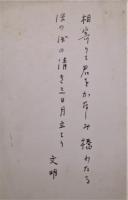 相寄りて君をかなしみ橋わたる
ほのぼの清き三日月立てり
文明